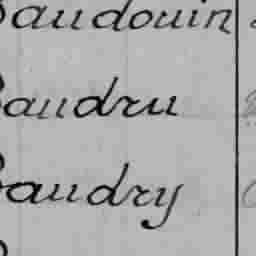 Baudouin
Baudru
Baudry